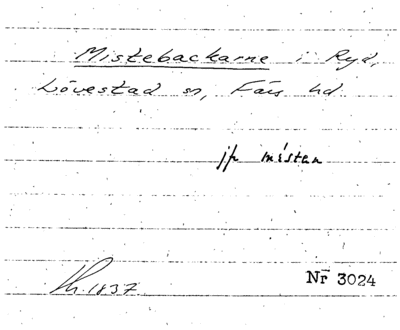 Mistebackarne i Ryd,
Lövestad sn, Färs hd
jfr mistan
Lh. 1837
Nr 3024